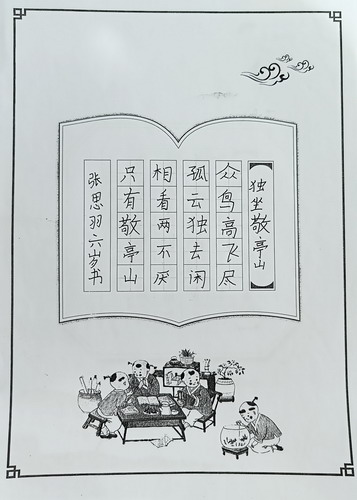 独坐敬亭山
众鸟高飞尽
孤云独去闲
相看两不厌
只有敬亭山
张思羽六岁书